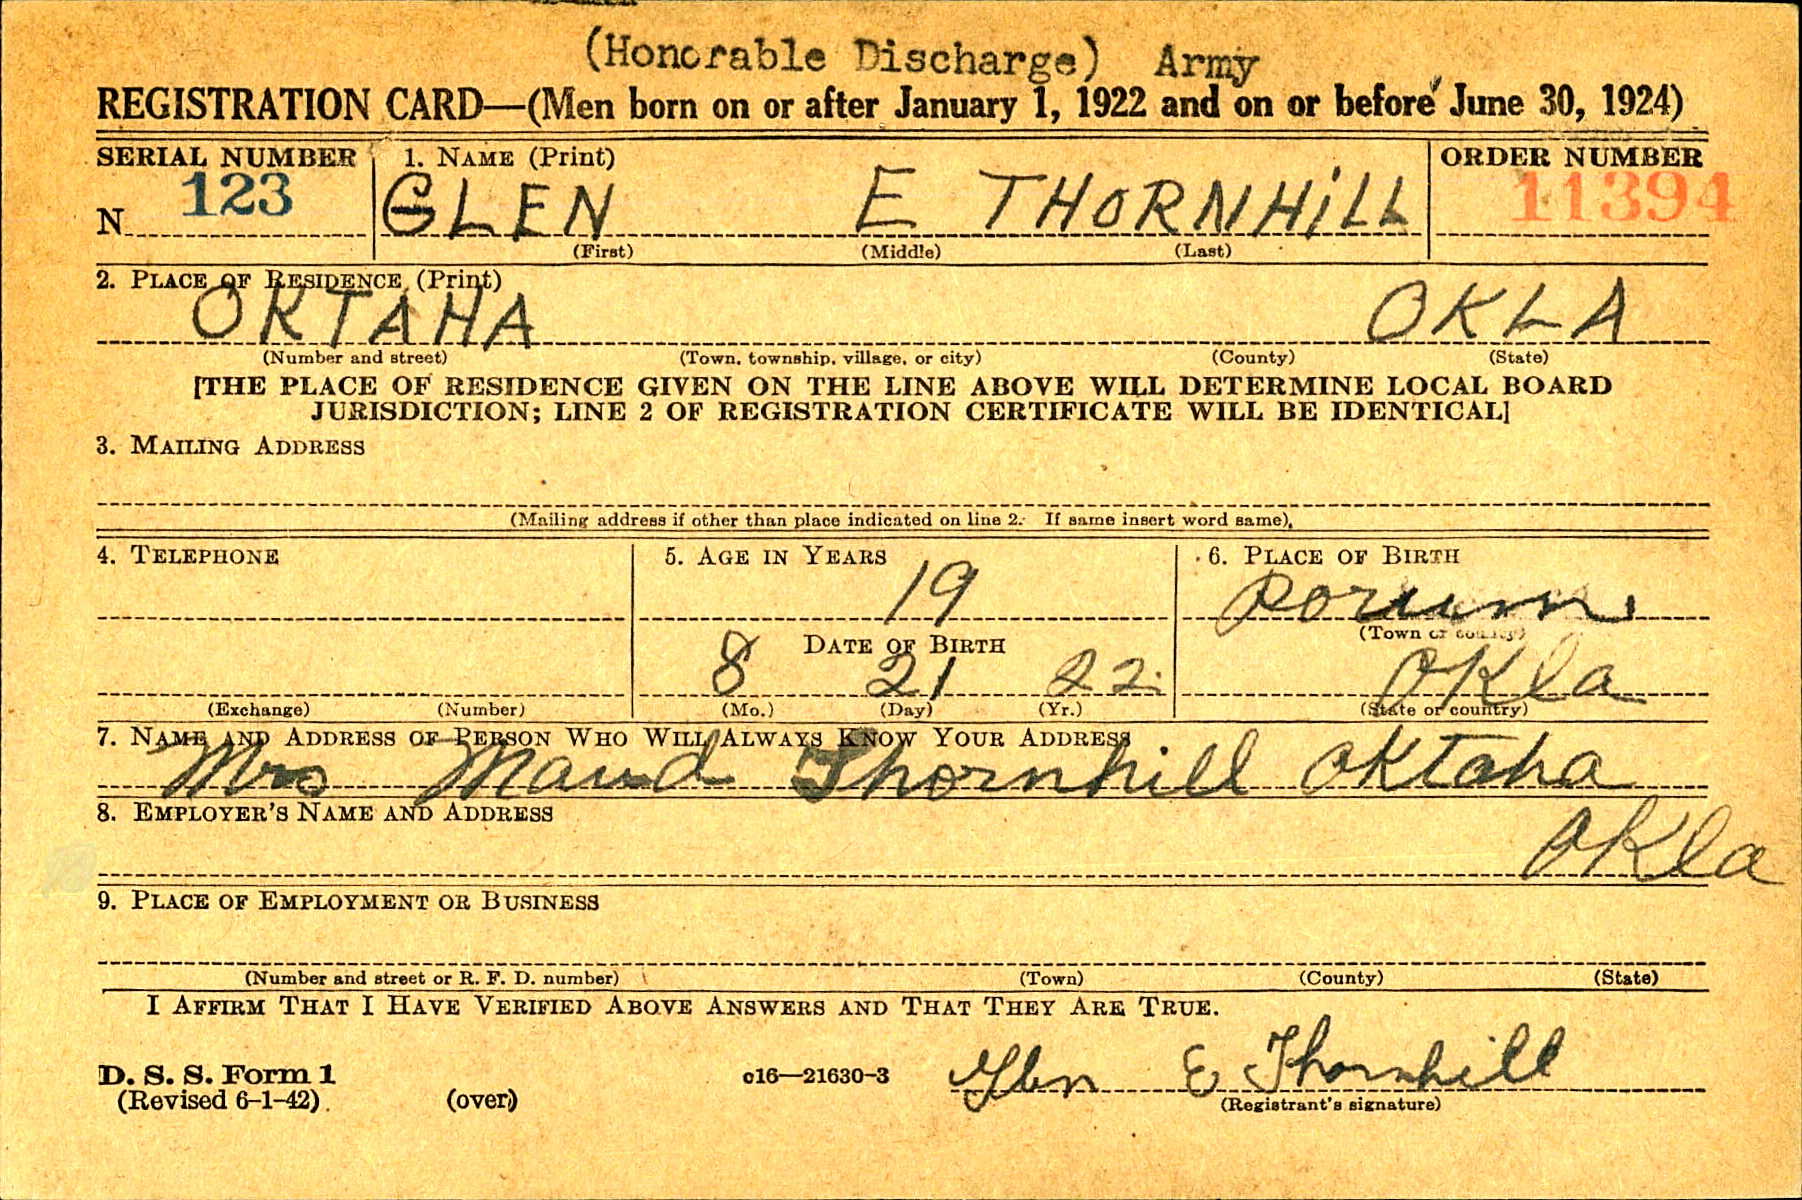 (Honorable Discharge) Army
REGISTRATION CARD—(Men born on or after January 1, 1922 and on or before June 30, 1924)
SERIAL NUMBER 1. NAME (Print) ORDER NUMBER
N 123 GLEN E THORNHiLL 11394
(First) (Middle) (Last)
2. PLACE OF RESIDENCE (Print)
OKTAHA OKLA
(Number and street) (Town, township, village, or city) (County) (State)
[THE PLACE OF RESIDENCE GIVEN ON THE LINE ABOVE WILL DETERMINE LOCAL BOARD
JURISDICTION; LINE 2 OF REGISTRATION CERTIFICATE WILL BE IDENTICAL]
3. MAILING ADDRESS
(Mailing address if other than place indicated on line 2. If same insert word same)
4. TELEPHONE 5. AGE IN YEARS 6. PLACE OF BIRTH
19 Porum
DATE OF BIRTH (Town or county)
8 21 22 Okla
(Exchange) (Number) (Mo.) (Day) (Yr.) (State or country)
7. NAME AND ADDRESS OF PERSON WHO WILL ALWAYS KNOW YOUR ADDRESS
Mrs Maud Thornhill Oktaha
8. EMPLOYER'S NAME AND ADDRESS
Okla
9. PLACE OF EMPLOYMENT OR BUSINESS
(Number and street or R. F. D. number) (Town) (County) (State)
I AFFIRM THAT I HAVE VERIFIED ABOVE ANSWERS AND THAT THEY ARE TRUE.
D. S. S. Form 1 c16—21630-3 Glen E Thornhill
(Revised 6-1-42) (over) (Registrant's signature)